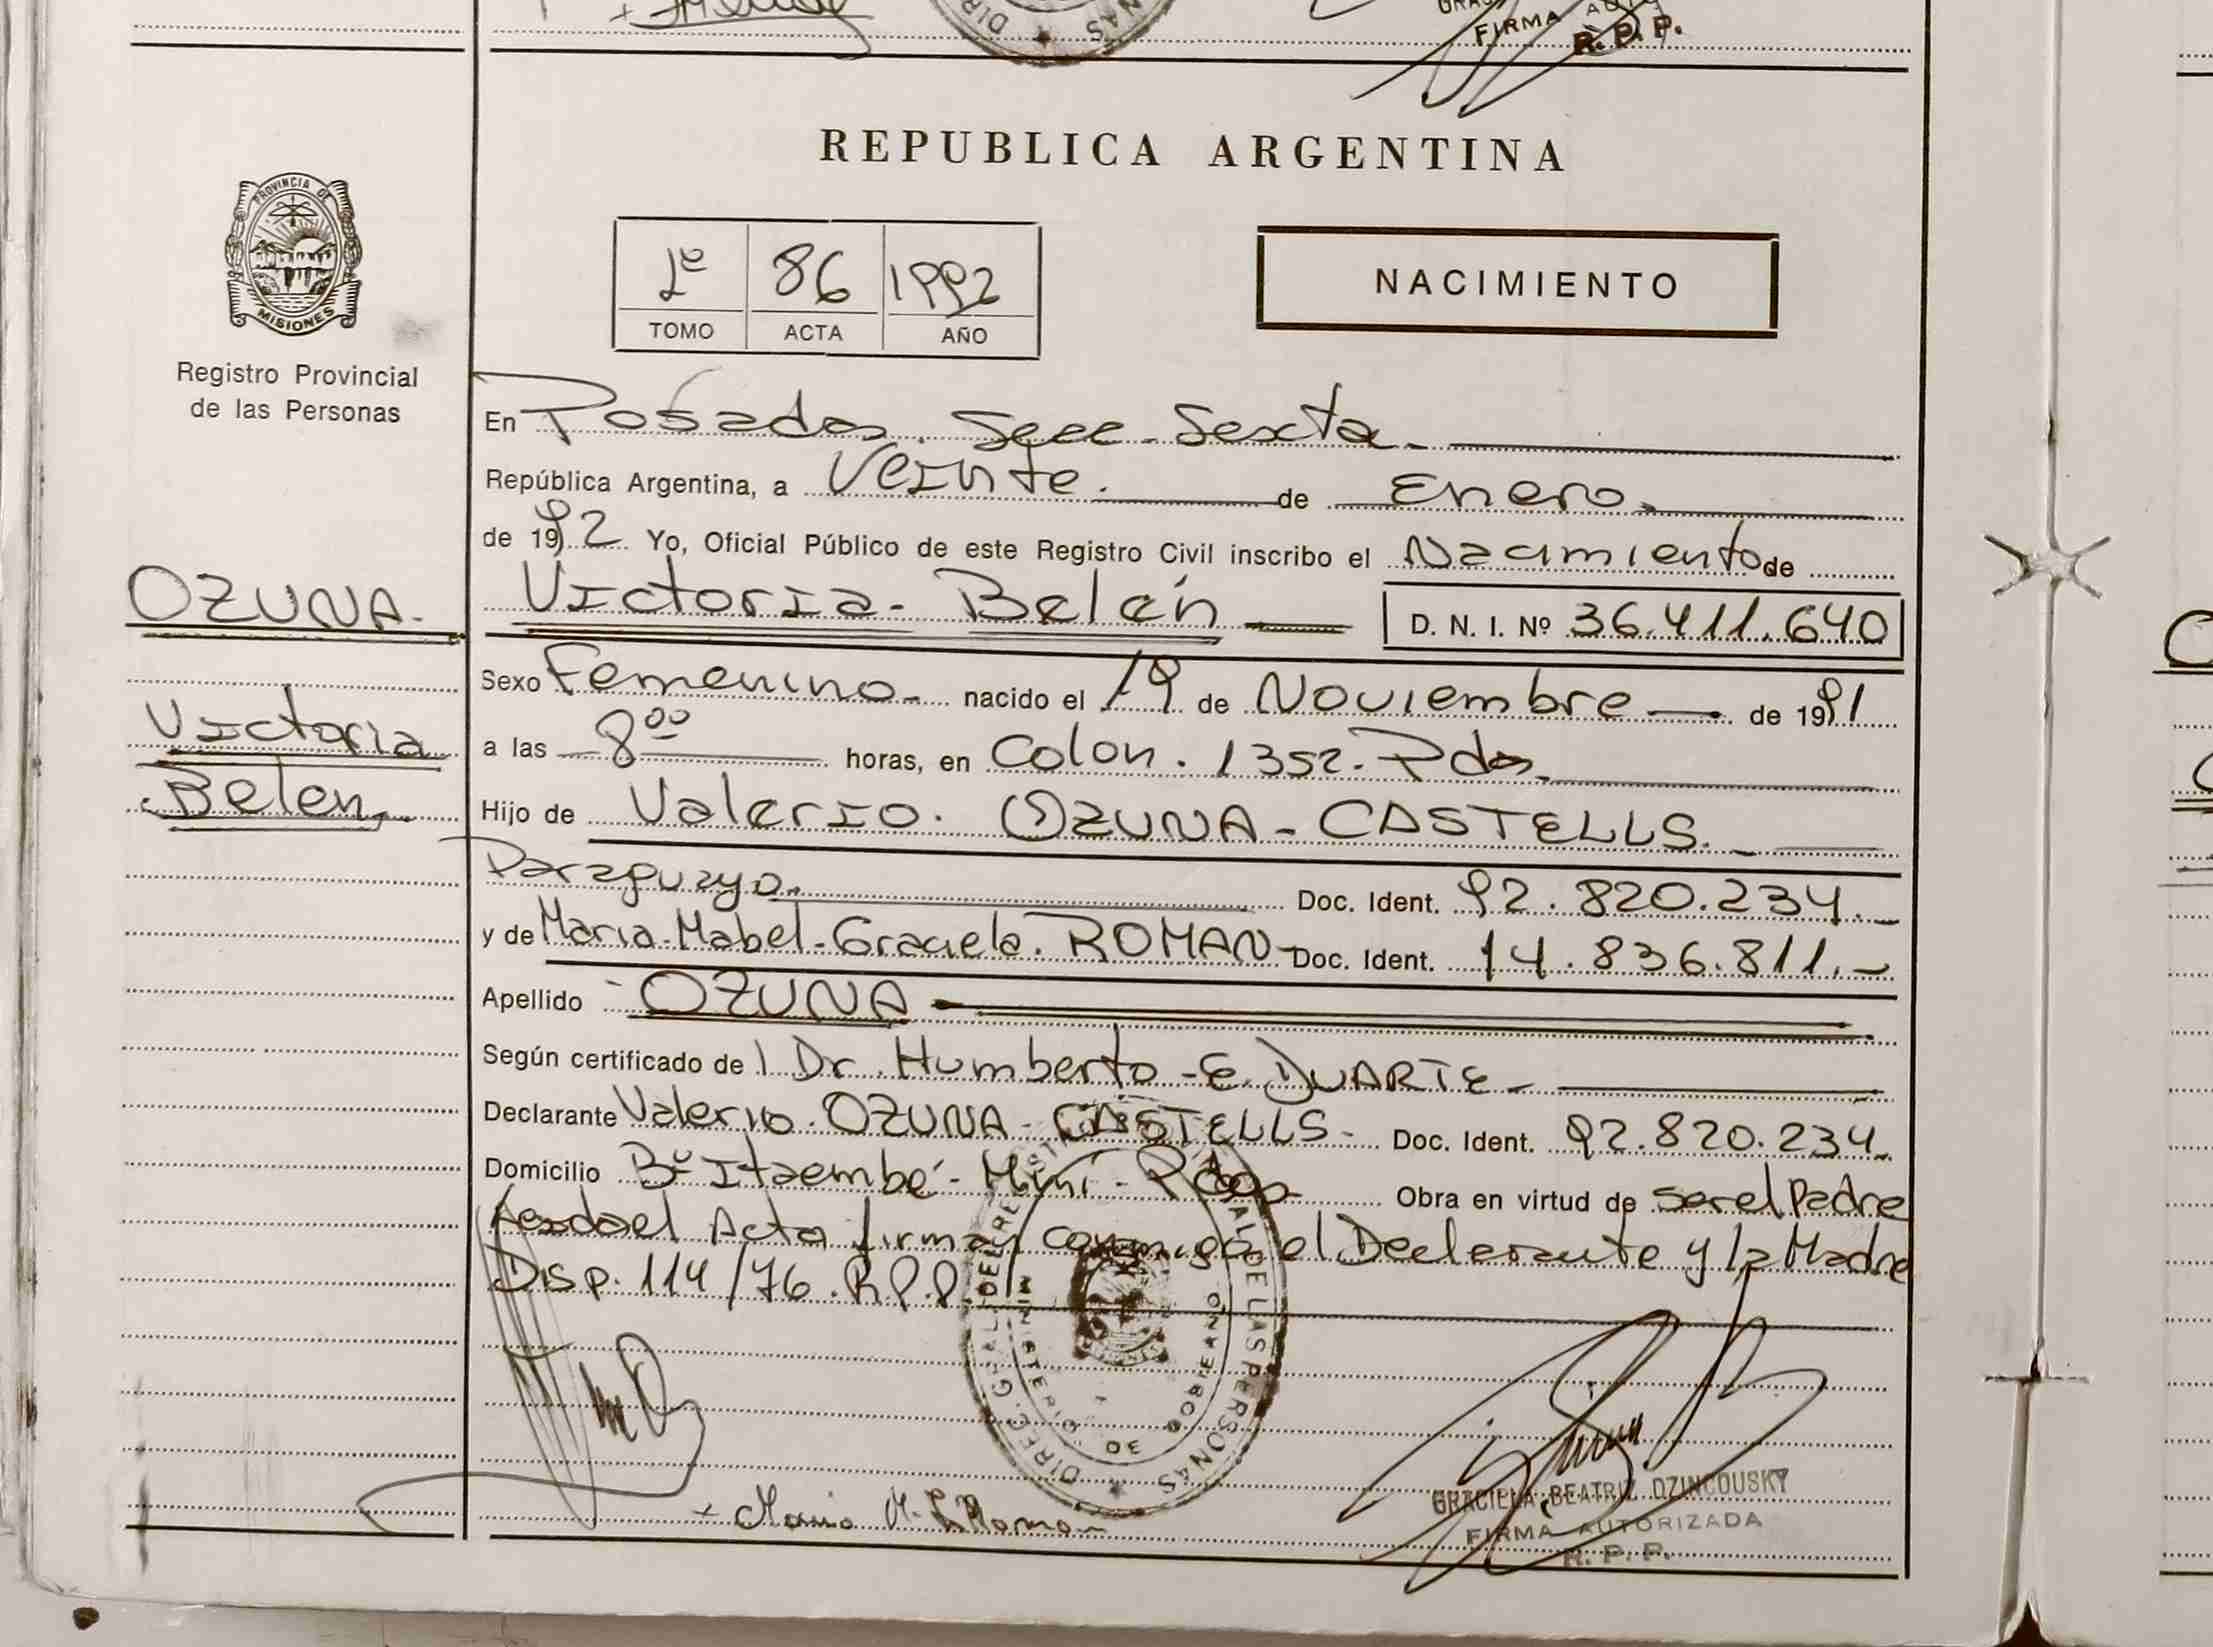 FIRMA AUTO
R. P. P.
REPUBLICA ARGENTINA
PROVINCIA DE
MISIONES
Registro Provincial
de las Personas
1º 86 1992
TOMO ACTA AÑO
NACIMIENTO
En Posadas. Secc. Sexta.
República Argentina, a Veinte. de Enero.
de 1992 Yo, Oficial Público de este Registro Civil inscribo el Nacimiento de
OZUNA.
Victoria
Belen
Victoria - Belén D. N. I. Nº 36.411.640
Sexo Femenino nacido el 19 de Noviembre de 1991
a las 8⁰⁰ horas, en Colon. 1352. Pdas.
Hijo de Valerio. OZUNA - CASTELLS.
Paraguayo. Doc. Ident. 92.820.234.
y de Maria - Mabel - Graciela. ROMAN Doc. Ident. 14.836.811.-
Apellido OZUNA
Según certificado de l Dr. Humberto - E. DUARTE -
Declarante Valerio. OZUNA - CASTELLS - Doc. Ident. 92.820.234.
Domicilio Bº Itaembé - Miní - Pdas Obra en virtud de ser el Padre
Leida el Acta firman conmigo el Declarante y la Madre
Disp. 114/76. R.P.P.
DIREC. GRAL. DEL REGISTRO PROVINCIAL DE LAS PERSONAS
MINISTERIO DE GOBIERNO
+ Maria M. G Roman
GRACIELA BEATRIZ DZINCOUSKY
FIRMA AUTORIZADA
R. P. P.